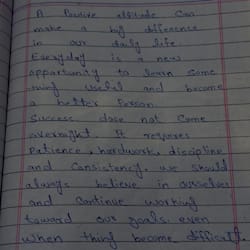 A Positive attitude Can
make a big difference
in our daily life
Everyday is a new
opportunity to learn some
thing useful and become
a better Person.
Success dose not Come
overnight It requres
Patience, hardwork, discipline
and Consistency, we should
always believe in ourselves
and Continue working
toward our goals. even
when thing become difficult.